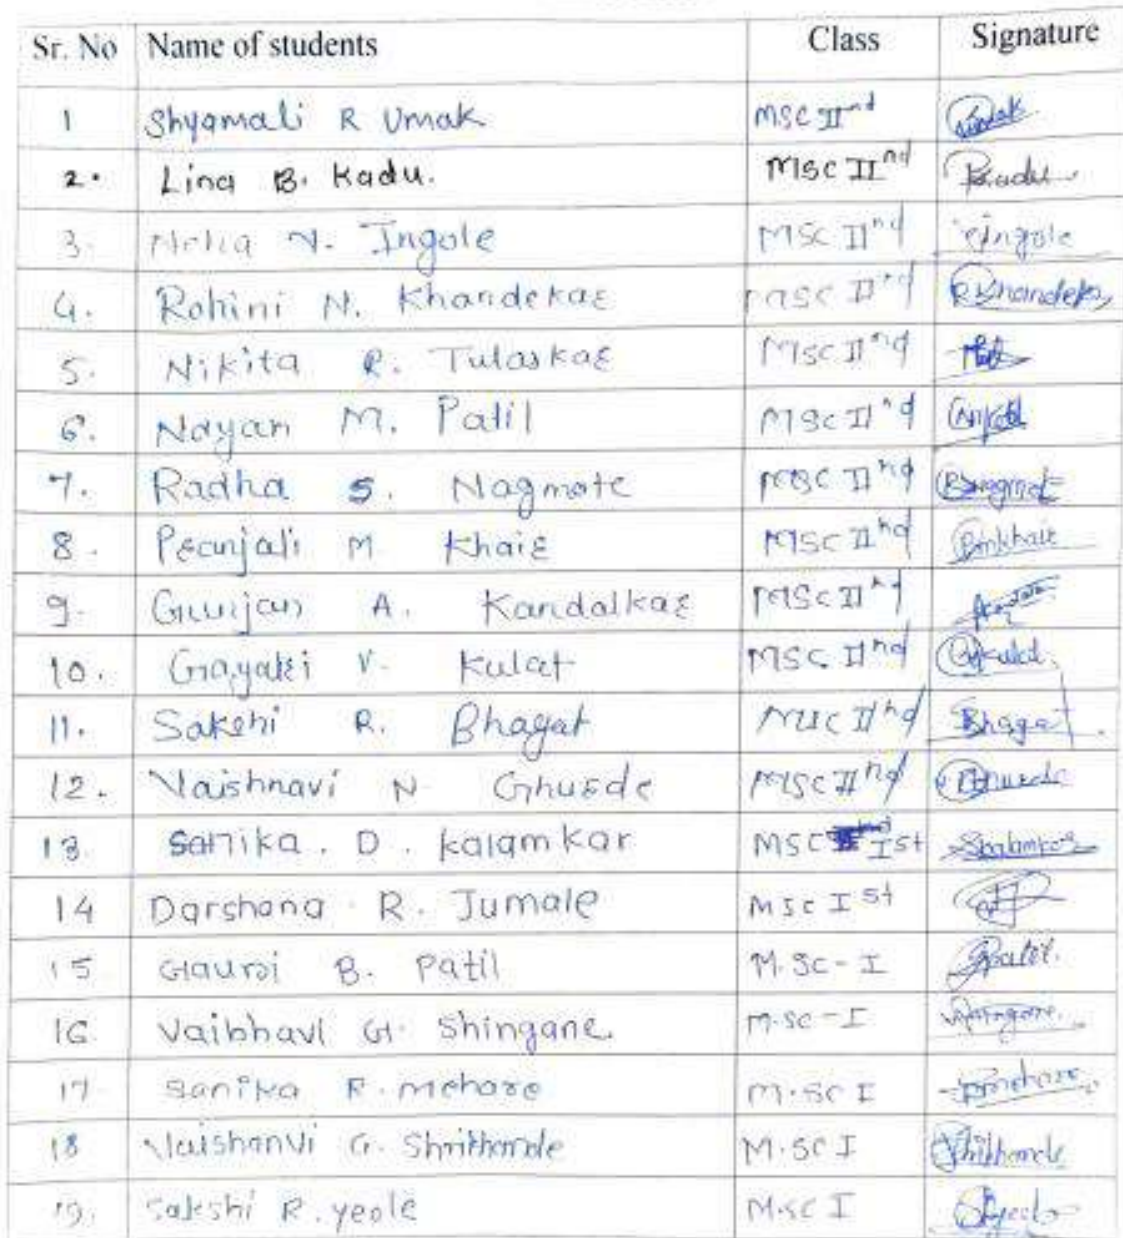 Sr. No Name of students Class Signature
1 Shyamali R Umak MSC IInd
2. Lina B. Kadu. MSC IInd Kadu
3. Neha N. Ingole MSC IInd Ingole
4. Rohini N. Khandekar MSC IInd RKhandekar
5. Nikita R. Tulaskar MSC IInd
6. Nayan M. Patil MSC IInd
7. Radha S. Nagmote MSC IInd
8. Pranjali M Khair MSC IInd
9. Gunjan A. Kandalkar MSC IInd
10. Gayatri V. Kulat MSC IInd Kulat
11. Sakshi R. Bhagat MSC IInd Bhagat
12. Vaishnavi N Ghurde MSC IInd
13. Sanika. D. kalamkar MSC Ist
14 Darshana R. Jumale MSc Ist
15 Gauri B. Patil M.Sc-I Patil.
16 Vaibhavi G. Shingane. M.Sc-I
17 Sanika F. mehare M.Sc I
18 Vaishanvi G. Shrikhande M.SC I Shrikhande
19. Sakshi R. yeole M.SC I